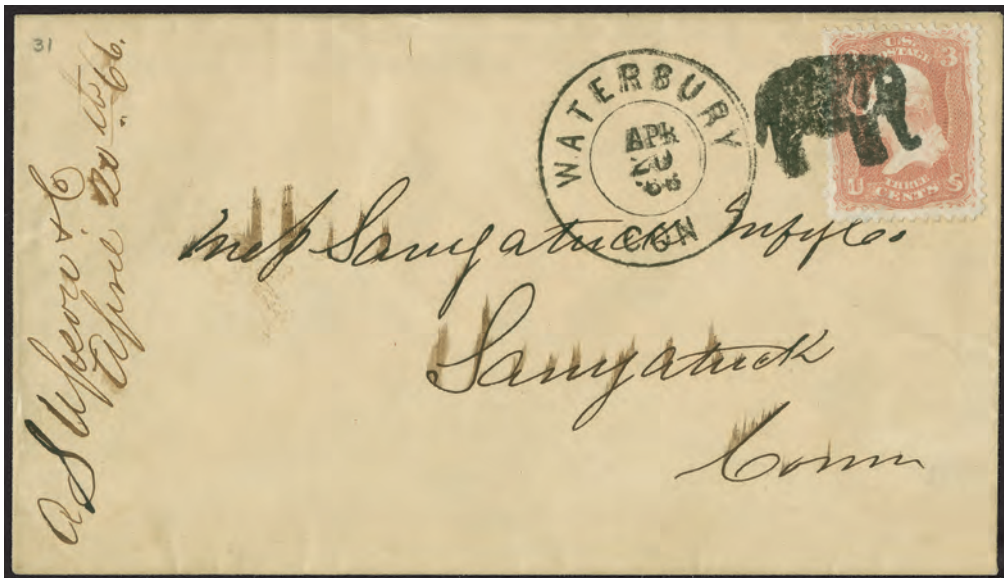 31
A S Upson & C
April 20th 66.
WATERBURY
APR
20
'66
CON
U.S.
POSTAGE
3
THREE
U CENTS S
Saugatuck Mfg Co.
Saugatuck
Conn